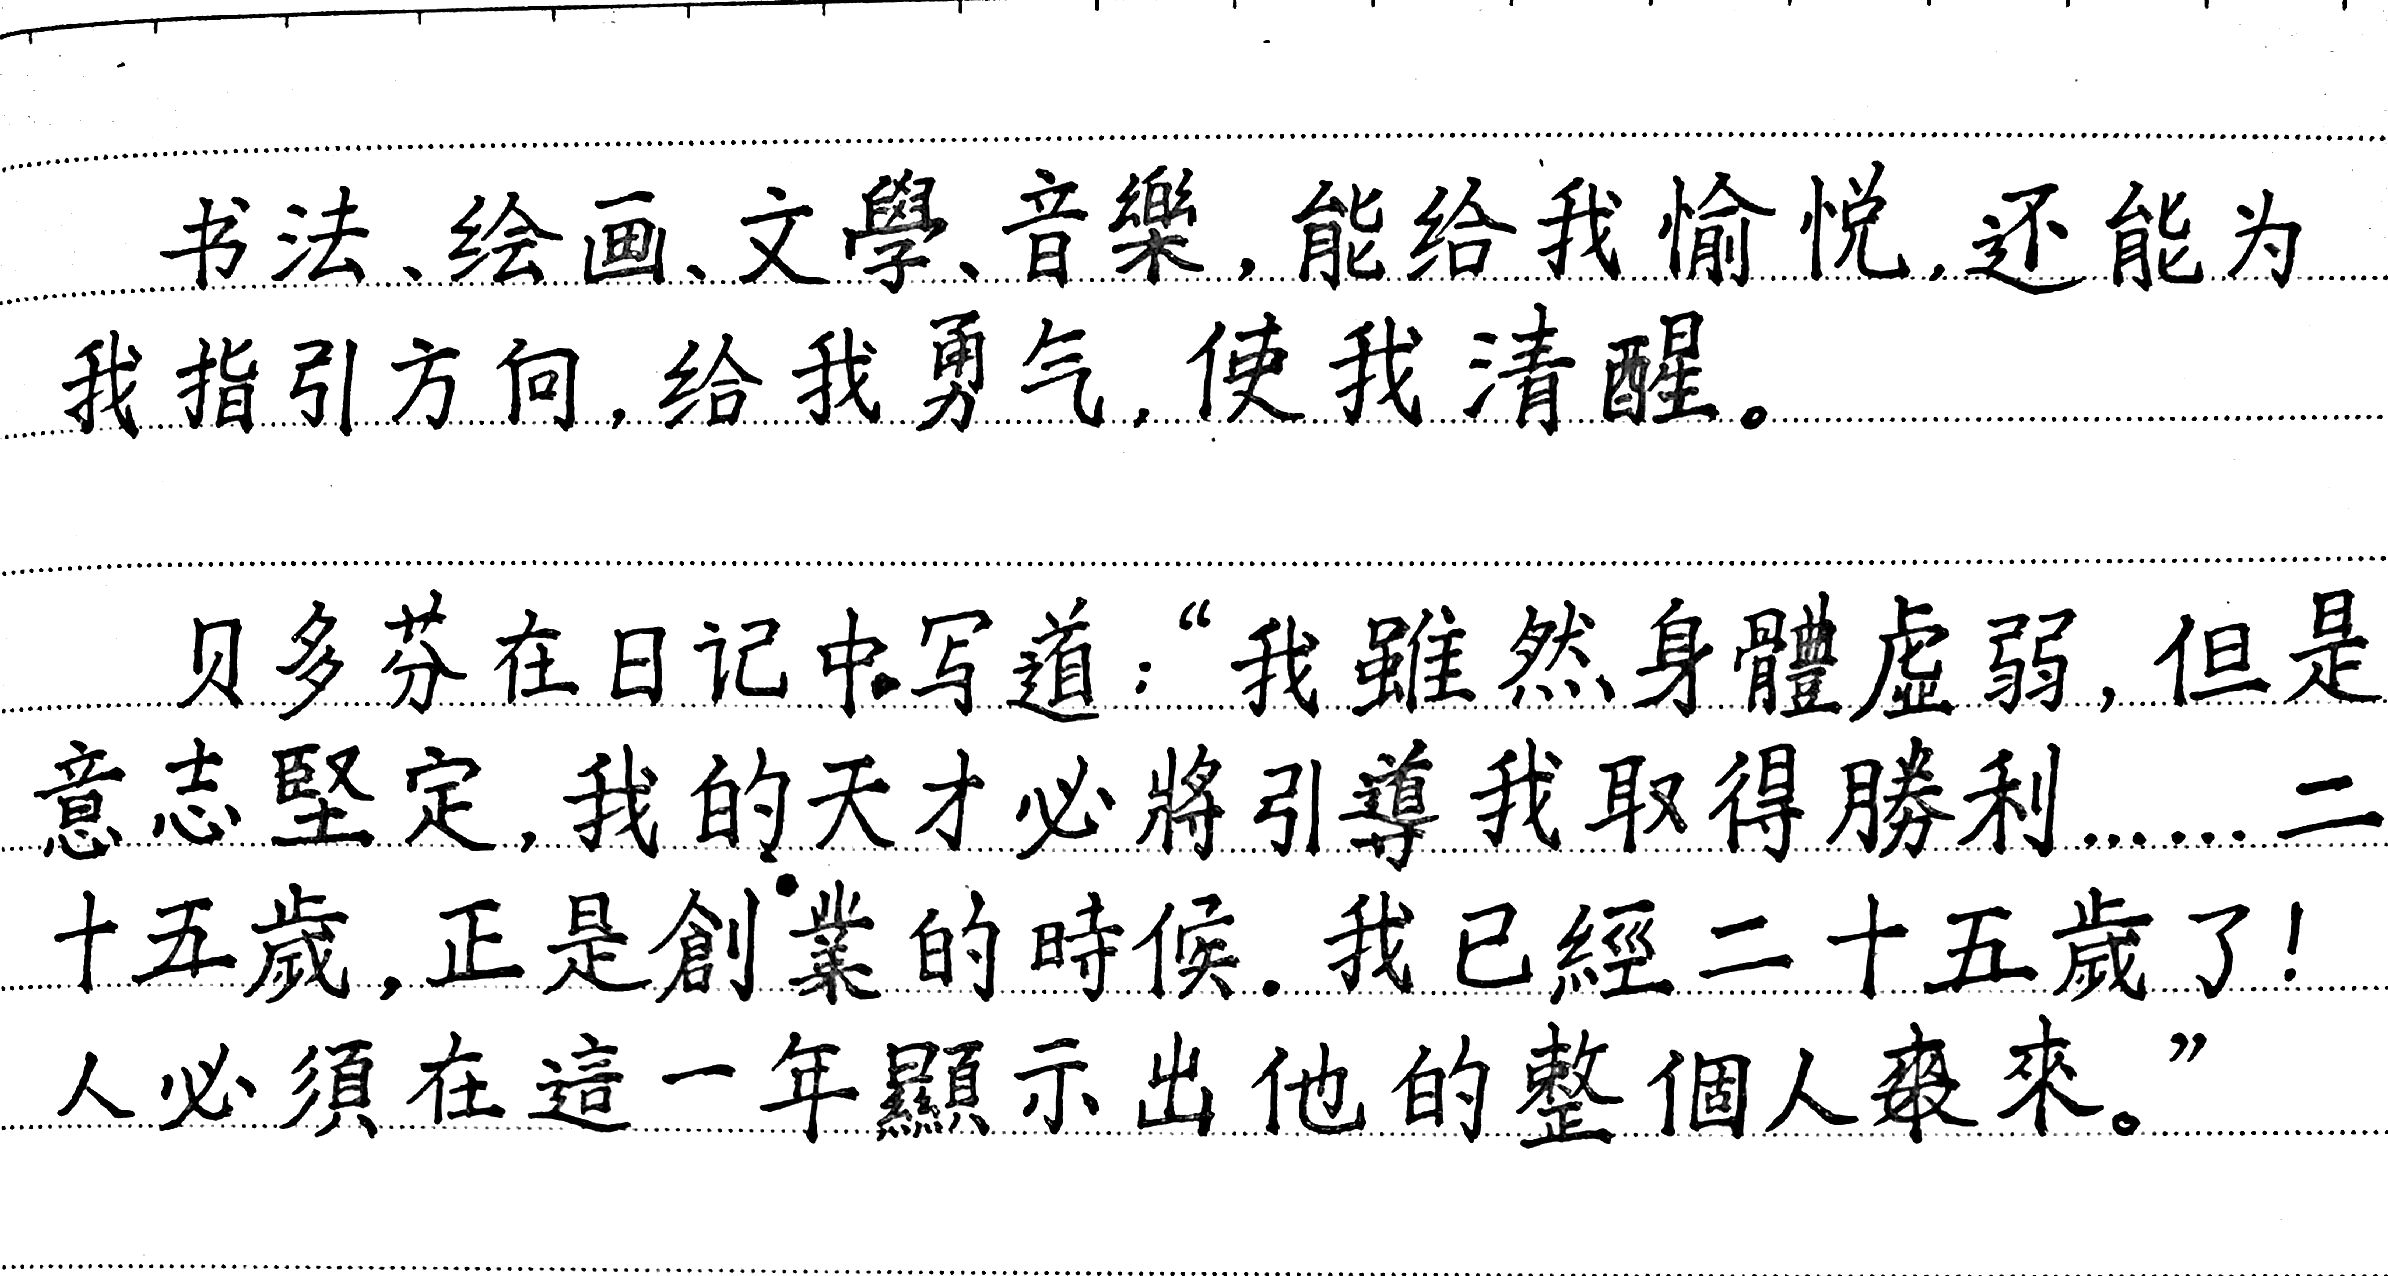 书法、绘画、文學、音樂,能给我愉悦,还能为
我指引方向,给我勇气,使我清醒。
贝多芬在日记中写道:“我雖然身體虚弱,但是
意志堅定,我的天才必將引導我取得勝利……二
十五歲,正是創業的時候.我已經二十五歲了!
人必須在這一年顯示出他的整個人來。”